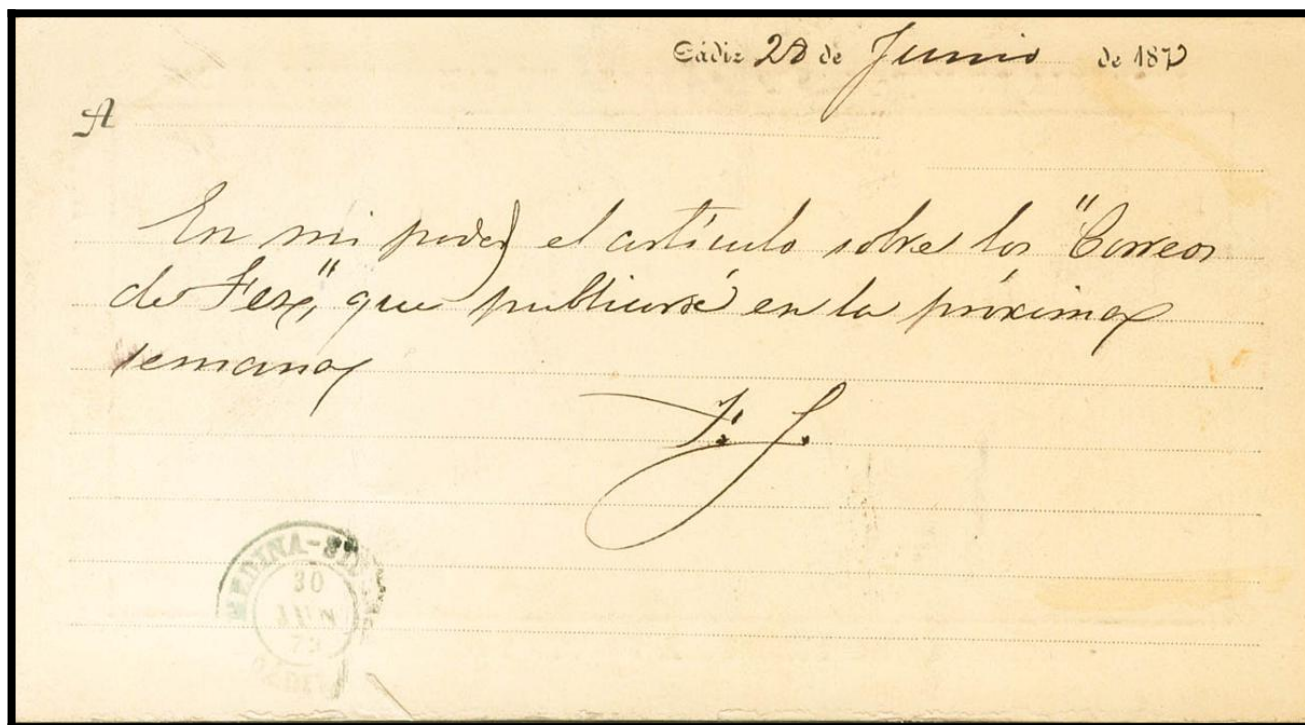 Cádiz 28 de Junio de 187
A
En mi poder el artículo sobre los "Correos
de Fez," que publicaré en la próxima
semana
F. J.
MEDINA-SI
30
JUN
73
CADIZ